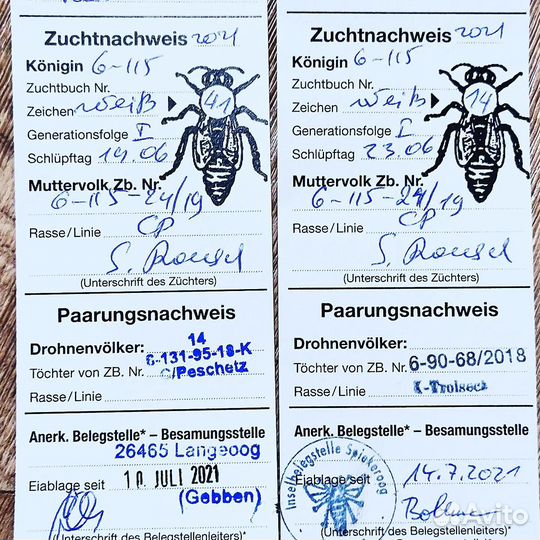 Zuchtnachweis 2021
Königin 6-115
Zuchtbuch Nr.
Zeichen weiß 41
Generationsfolge I
Schlüpftag 19.06
Muttervolk Zb. Nr.
6-115-24/19
Rasse/Linie CP
(Unterschrift des Züchters)
Paarungsnachweis
Drohnenvölker: 14
6-131-95-18-K
Töchter von ZB. Nr. C/Peschetz
Rasse/Linie
Anerk. Belegstelle* – Besamungsstelle
26465 Langeoog
Eiablage seit 10 JULI 2021
(Gebben)
(Unterschrift des Belegstellenleiters)*
Zuchtnachweis 2021
Königin 6-115
Zuchtbuch Nr.
Zeichen weiß 14
Generationsfolge I
Schlüpftag 23.06
Muttervolk Zb. Nr.
6-115-24/19
Rasse/Linie CP
(Unterschrift des Züchters)
Paarungsnachweis
Drohnenvölker:
Töchter von ZB. Nr. 6-90-68/2018
Rasse/Linie K-Troiseck
Anerk. Belegstelle* – Besamungsstelle
Inselbelegstelle Spiekeroog
Eiablage seit 14.7.2021
(Unterschrift des Belegstellenleiters)*
Avito